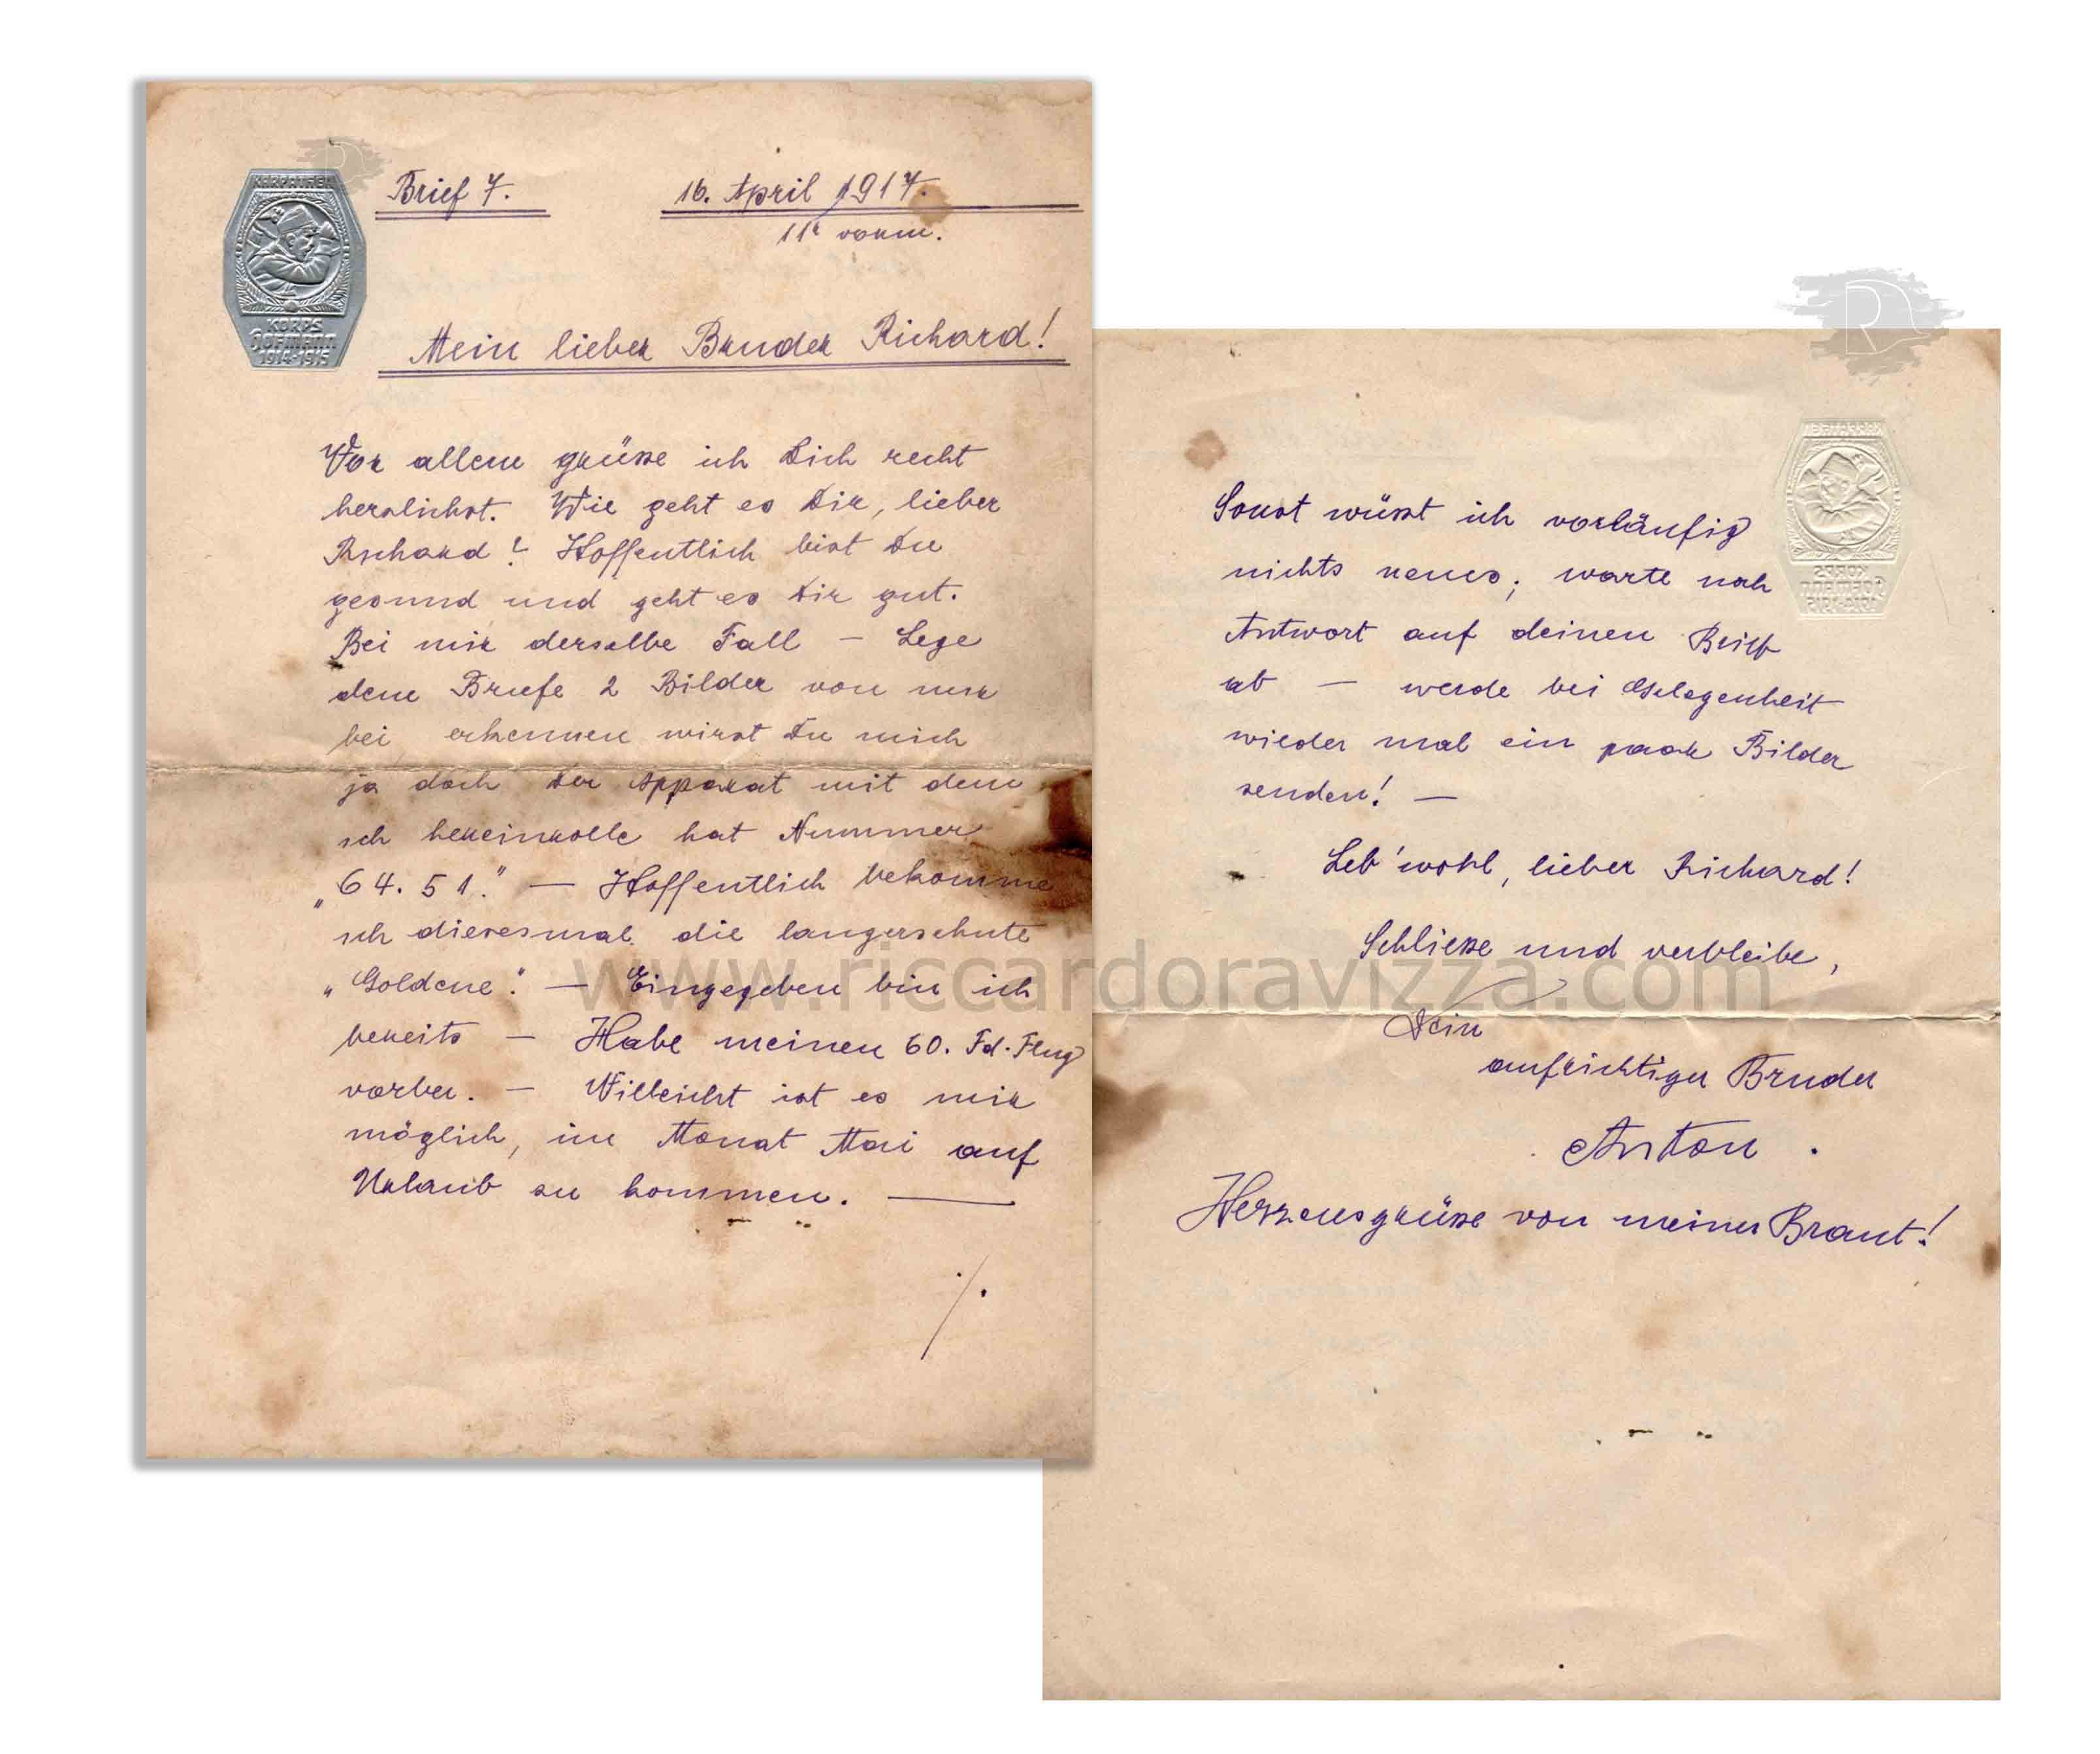 KARPATHEN
KORPS
HOFMANN
1914-1915
Brief 7.
16. April 1917.
11h vorm.
Mein lieber Bruder Richard!
Vor allem grüsse ich Dich recht
herzlichst. Wie geht es Dir, lieber
Richard? Hoffentlich bist Du
gesund und geht es Dir gut.
Bei mir derselbe Fall – Lege
dem Briefe 2 Bilder von mir
bei erkennen wirst Du mich
ja doch Der Apparat mit dem
ich hereinrolle hat Nummer
„64.51." — Hoffentlich bekomme
ich diesesmal die langersehnte
„Goldene". — Eingegeben bin ich
bereits — Habe meinen 60. Fd. Flug
vorbei. — Villeicht ist es mir
möglich, im Monat Mai auf
Urlaub zu kommen. —
./.
Sonst wüsst ich vorläufig
nichts neues; warte noch
Antwort auf deinen Brief
ab — werde bei Gelegenheit
wieder mal ein paar Bilder
senden! —
Leb' wohl, lieber Richard!
Schliesse und verbleibe,
Dein
aufrichtiger Bruder
Anton.
Herzensgrüsse von meiner Braut!
KARPATHEN
KORPS
HOFMANN
1914-1915
www.riccardoravizza.com